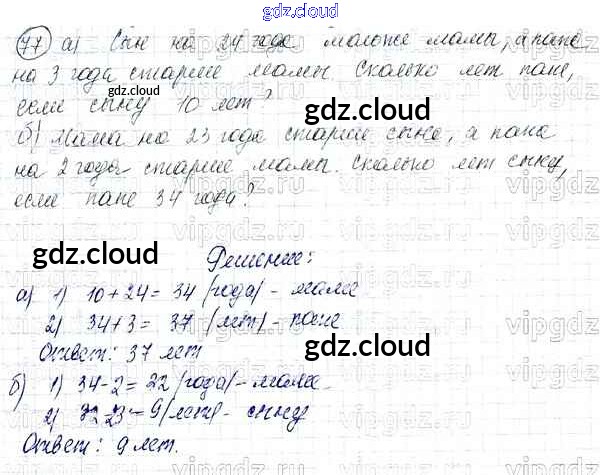 gdz.cloud
77) а) Сын на 24 года моложе мамы, а папа
на 3 года старше мамы. Сколько лет папе,
если сыну 10 лет?
gdz.cloud
б) Мама на 23 года старше сына, а папа
на 2 года старше мамы. Сколько лет сыну,
если папе 34 года?
gdz.cloud
Решение:
а) 1) 10+24= 34 (года) - маме
2) 34+3= 37 (лет) - папе
gdz.cloud
Ответ: 37 лет
б) 1) 34-2=22 (года) - маме
2) 32-23=9 (лет) - сыну
gdz.cloud
Ответ: 9 лет.